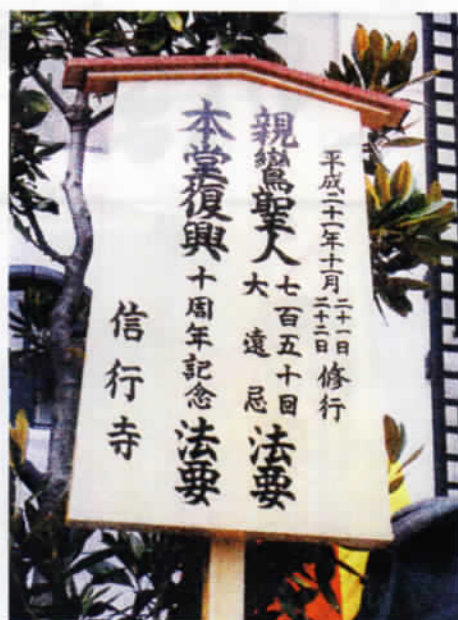 平成二十一年十一月二十一日二十二日修行
親鸞聖人七百五十回大遠忌法要
本堂復興十周年記念法要
信行寺